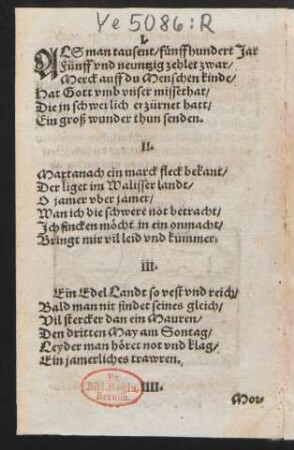 Ye 5086:R
I.
ALS man tausent/fünffhundert Jar
Fünff vnd neuntzig zehlet zwar/
Merck auff du Menschen kinde/
Hat Gott vmb vnser missethat/
Die jn schwerlich erzürnet hatt/
Ein groß wunder thun senden.
II.
Martanach ein marck fleck bekant/
Der liget im Walisser landt/
O jamer vber jamer/
Wan ich die schwere not betracht/
Ich sincken möcht in ein onmacht/
Bringt mir vil leid vnd kummer.
iii.
Ein Edel Landt so vest vnd reich/
Bald man nit findet seines gleich/
Vil stercker dan ein Mauren/
Den dritten May am Sontag/
Leyder man höret not vnd klag/
Ein jamerliches trawren.
IIII.
Mor-
Ex
Bibl. Regia
Berolin.